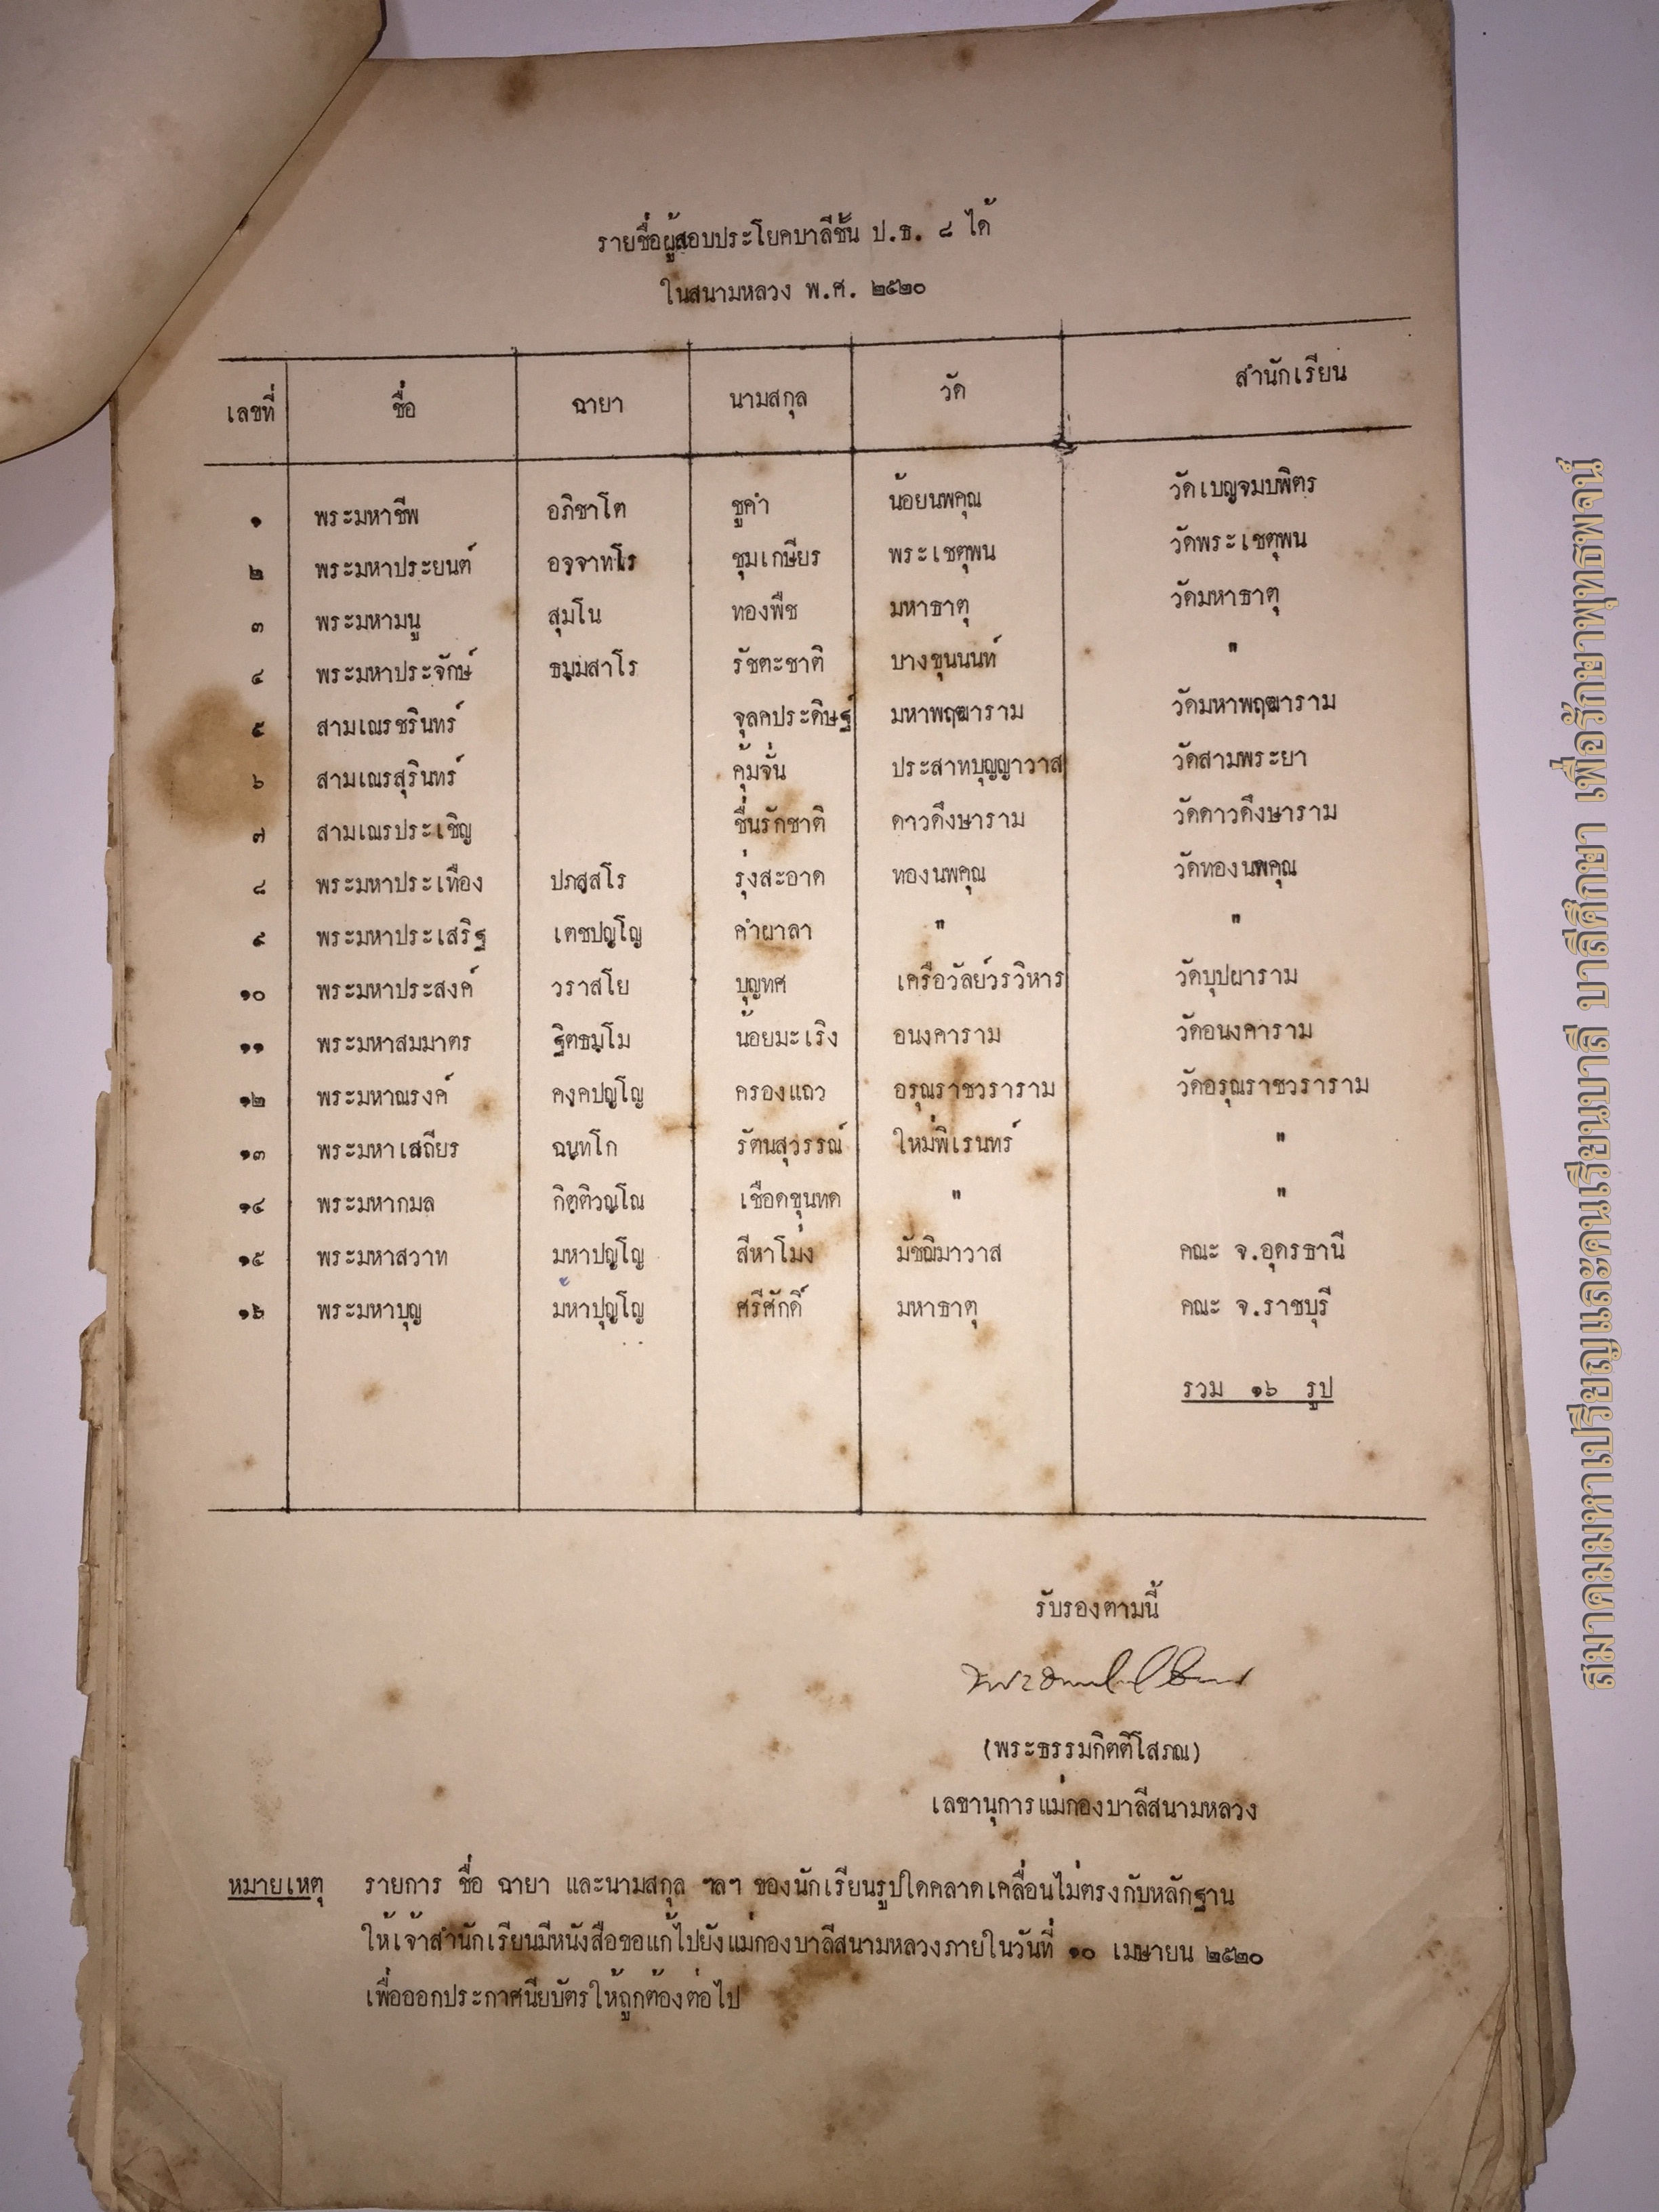 รายชื่อผู้สอบประโยคบาลีชั้น ป.ธ. ๘ ได้
ในสนามหลวง พ.ศ. ๒๕๒๐
เลขที่ ชื่อ ฉายา นามสกุล วัด สำนักเรียน
๑ พระมหาชีพ อภิชาโต ชูคำ น้อยนพคุณ วัดเบญจมบพิตร
๒ พระมหาประยนต์ อจฺจาทโร ชุมเกษียร พระเชตุพน วัดพระเชตุพน
๓ พระมหามนู สุมโน ทองพืช มหาธาตุ วัดมหาธาตุ
๔ พระมหาประจักษ์ ธมฺมสาโร รัชตะชาติ บางขุนนนท์ "
๕ สามเณรชรินทร์ จุลคประดิษฐ์ มหาพฤฒาราม วัดมหาพฤฒาราม
๖ สามเณรสุรินทร์ คุ้มจั่น ประสาทบุญญาวาส วัดสามพระยา
๗ สามเณรประเชิญ ชื่นรักชาติ ดาวดึงษาราม วัดดาวดึงษาราม
๘ พระมหาประเทือง ปภสฺสโร รุ่งสะอาด ทองนพคุณ วัดทองนพคุณ
๙ พระมหาประเสริฐ เตชปญฺโญ คำผาลา " "
๑๐ พระมหาประสงค์ วราสโย บุญทศ เครือวัลย์วรวิหาร วัดบุปผาราม
๑๑ พระมหาสมมาตร ฐิตธมฺโม น้อยมะเริง อนงคาราม วัดอนงคาราม
๑๒ พระมหาณรงค์ คงฺคปญฺโญ ครองแถว อรุณราชวราราม วัดอรุณราชวราราม
๑๓ พระมหาเสถียร ฉนฺทโก รัตนสุวรรณ์ ใหม่พิเรนทร์ "
๑๔ พระมหากมล กิตฺติวณฺโณ เชือดขุนทด " "
๑๕ พระมหาสวาท มหาปญฺโญ สีหาโมง มัชฌิมาวาส คณะ จ.อุดรธานี
๑๖ พระมหาบุญ มหาปุญฺโญ ศรีศักดิ์ มหาธาตุ คณะ จ.ราชบุรี
รวม ๑๖ รูป
รับรองตามนี้
(พระธรรมกิตติโสภณ)
เลขานุการแม่กองบาลีสนามหลวง
หมายเหตุ รายการ ชื่อ ฉายา และนามสกุล ฯลฯ ของนักเรียนรูปใดคลาดเคลื่อนไม่ตรงกับหลักฐาน
ให้เจ้าสำนักเรียนมีหนังสือขอแก้ไปยังแม่กองบาลีสนามหลวงภายในวันที่ ๑๐ เมษายน ๒๕๒๐
เพื่อออกประกาศนียบัตรให้ถูกต้องต่อไป
สมาคมมหาเปรียญและคนเรียนบาลี บาลีศึกษา เพื่อรักษาพุทธพจน์